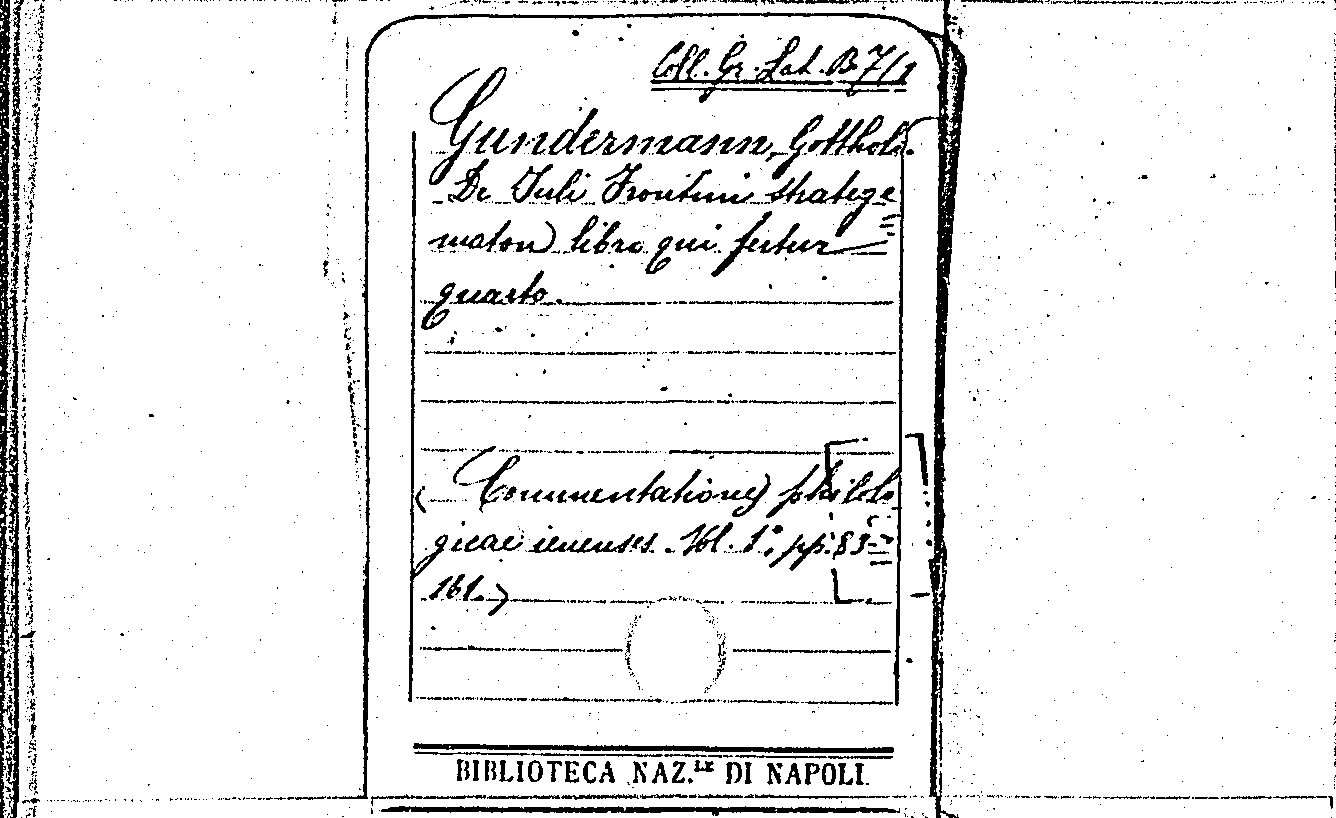 Coll. Gr. Lat. B. 7/1
Gundermann, Gotthold.
De Iuli Frontini stratege=
maton libro qui fertur
quarto.
(Commentationes philolo
gicae ienenses. Vol. 1°, pp. 83-
161.)
BIBLIOTECA NAZ.LE DI NAPOLI